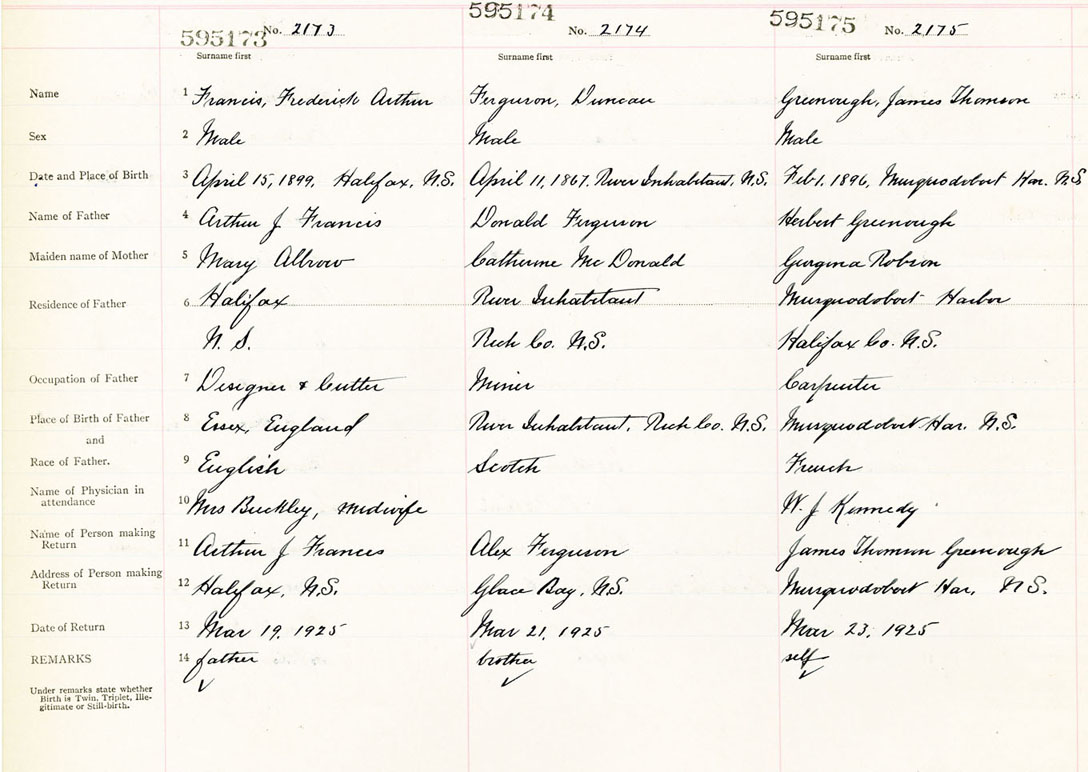 595173 No. 2173 595174 No. 2174 595175 No. 2175
Surname first Surname first Surname first
Name 1 Francis, Frederick Arthur Ferguson, Duncan Greenough, James Thomson
Sex 2 Male Male Male
Date and Place of Birth 3 April 15, 1899, Halifax, N.S. April 11, 1867, River Inhabitant, N.S. Feb 1, 1896, Musquodoboit Har. N.S
Name of Father 4 Arthur J Francis Donald Ferguson Herbert Greenough
Maiden name of Mother 5 Mary Albrow Catherine Mc Donald Gurgina Robson
Residence of Father 6 Halifax River Inhabitant Musquodoboit Harbor
N. S. Rich Co. N.S. Halifax Co. N.S.
Occupation of Father 7 Designer & Cutter Miner Carpenter
Place of Birth of Father 8 Essex, England River Inhabitant, Rich Co. N.S. Musquodoboit Har. N.S.
and
Race of Father. 9 English Scotch French
Name of Physician in
attendance 10 Mrs Buckley, midwife W. J Kennedy
Name of Person making
Return 11 Arthur J Francis Alex Ferguson James Thomson Greenough
Address of Person making
Return 12 Halifax, N.S. Glace Bay, N.S. Musquodoboit Har, N S.
Date of Return 13 Mar 19, 1925 Mar 21, 1925 Mar 23, 1925
REMARKS 14 father brother self
Under remarks state whether
Birth is Twin, Triplet, Ille-
gitimate or Still-birth.